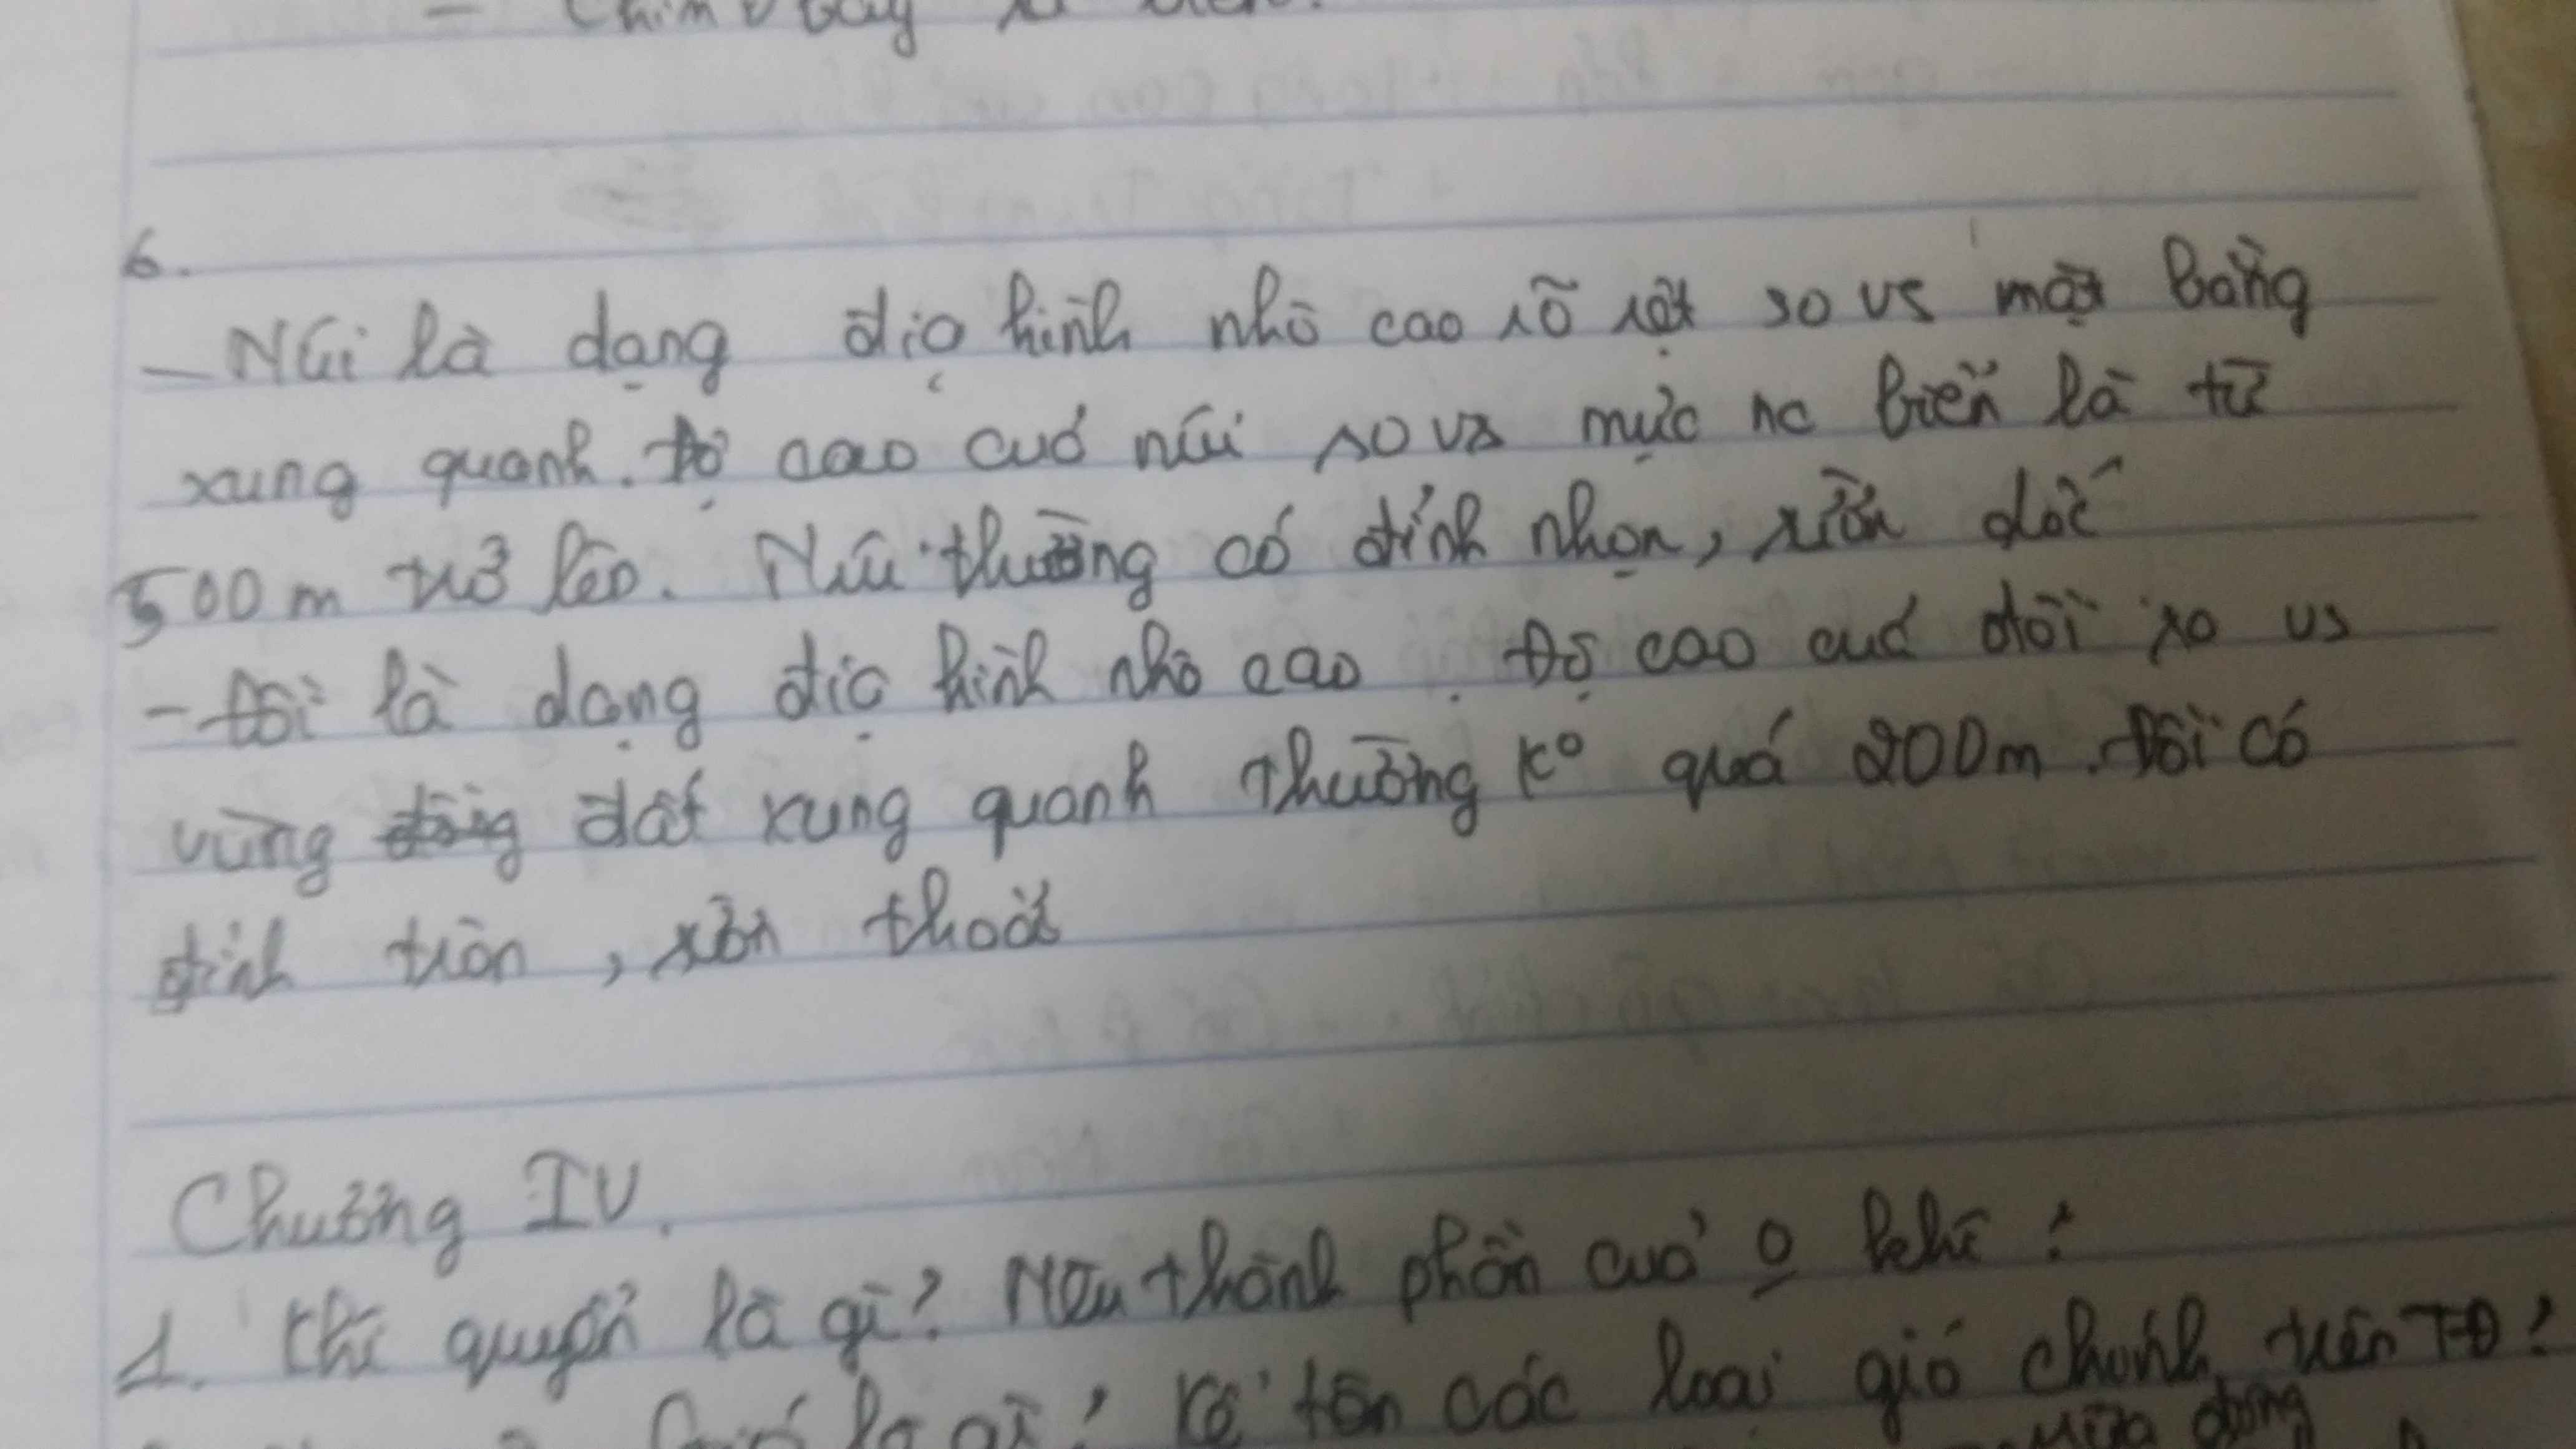 6.
- Núi là dạng địa hình nhô cao rõ rệt so vs mặt bằng
xung quanh. Độ cao cuả núi so vs mực nc biển là từ
500m trở lên. Núi thường có đỉnh nhọn, sườn dốc
- Đồi là dạng địa hình nhô cao. Độ cao cuả đồi so vs
vùng đất xung quanh thường k° quá 200m. Đồi có
đỉnh tròn, sườn thoải
Chương IV.
1. Khí quyển là gì? Nêu thành phần cuả o khí?
là gì? Kể tên các loại gió chính trên TĐ?